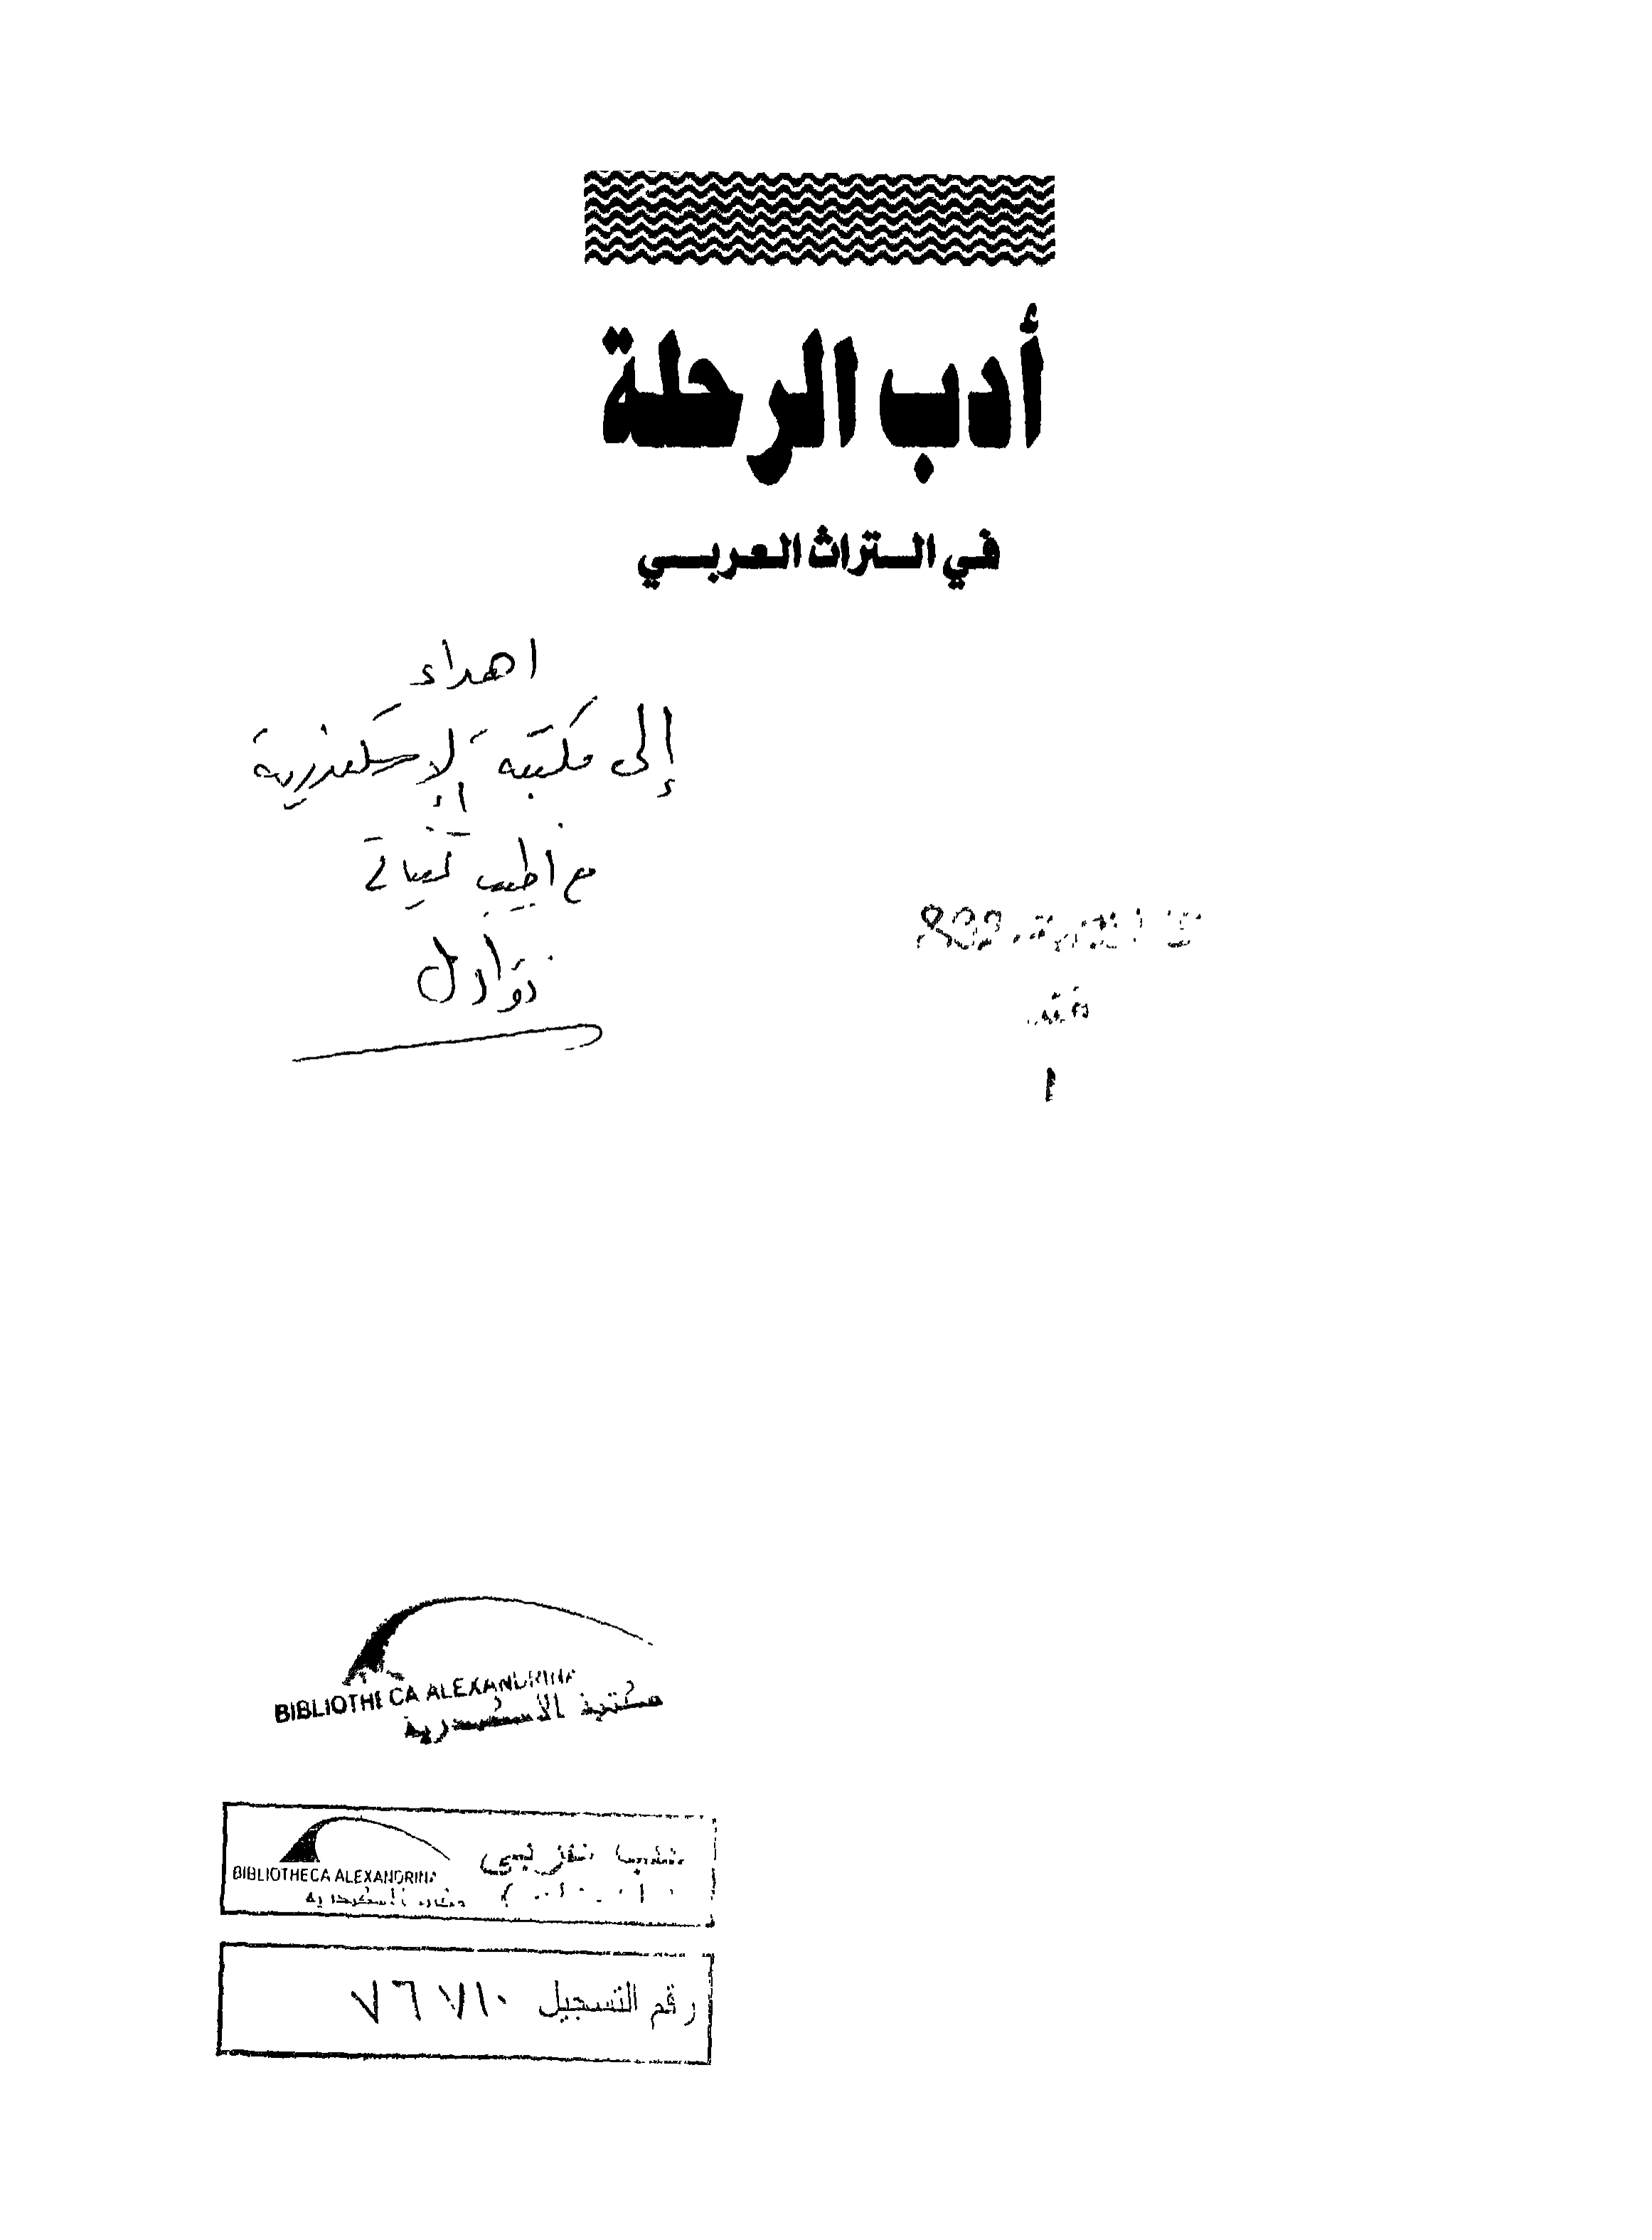 أدب الرحلة
في التراث العربي
اهداء
إلى مكتبة الإسكندرية
مع أطيب تمنياتي
BIBLIOTHECA ALEXANDRINA
مكتبة الأسكندرية
BIBLIOTHECA ALEXANDRINA
رقم التسجيل ٧٦٧١٠